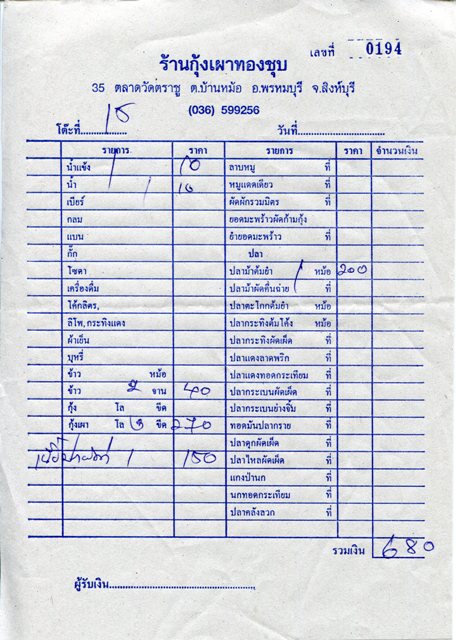 เลขที่ 0194
ร้านกุ้งเผาทองชุบ
35 ตลาดวัดตราชู ต.บ้านหม้อ อ.พรหมบุรี จ.สิงห์บุรี
(036) 599256
โต๊ะที่ วันที่
รายการ ราคา รายการ ราคา จำนวนเงิน
น้ำแข็ง 10 ลาบหมู ที่
น้ำ 1 10 หมูแดดเดียว ที่
เบียร์ ผัดผักรวมมิตร ที่
กลม ยอดมะพร้าวผัดก้ามกุ้ง
แบน ยำยอดมะพร้าว ที่
กั๊ก ปลา
โซดา ปลาม้าต้มยำ 1 หม้อ 200
เครื่องดื่ม ปลาม้าผัดคื่นฉ่าย ที่
โค้กลิตร, ปลาตะโกกต้มยำ หม้อ
ลิโพ, กระทิงแดง ปลากระทิงต้มโค้ง หม้อ
ผ้าเย็น ปลากระทิงผัดเผ็ด ที่
บุหรี่ ปลาแดงลาดพริก ที่
ข้าว หม้อ ปลาแดงทอดกระเทียม ที่
ข้าว 2 จาน 40 ปลากระเบนผัดเผ็ด ที่
กุ้ง โล ขีด ปลากระเบนย่างจิ้ม ที่
กุ้งเผา โล 3 ขีด 270 ทอดมันปลากราย ที่
ปลาดุกผัดเผ็ด ที่
1 150 ปลาไหลผัดเผ็ด ที่
แกงป่านก ที่
นกทอดกระเทียม ที่
ปลาคลังลวก ที่
รวมเงิน 680
ผู้รับเงิน